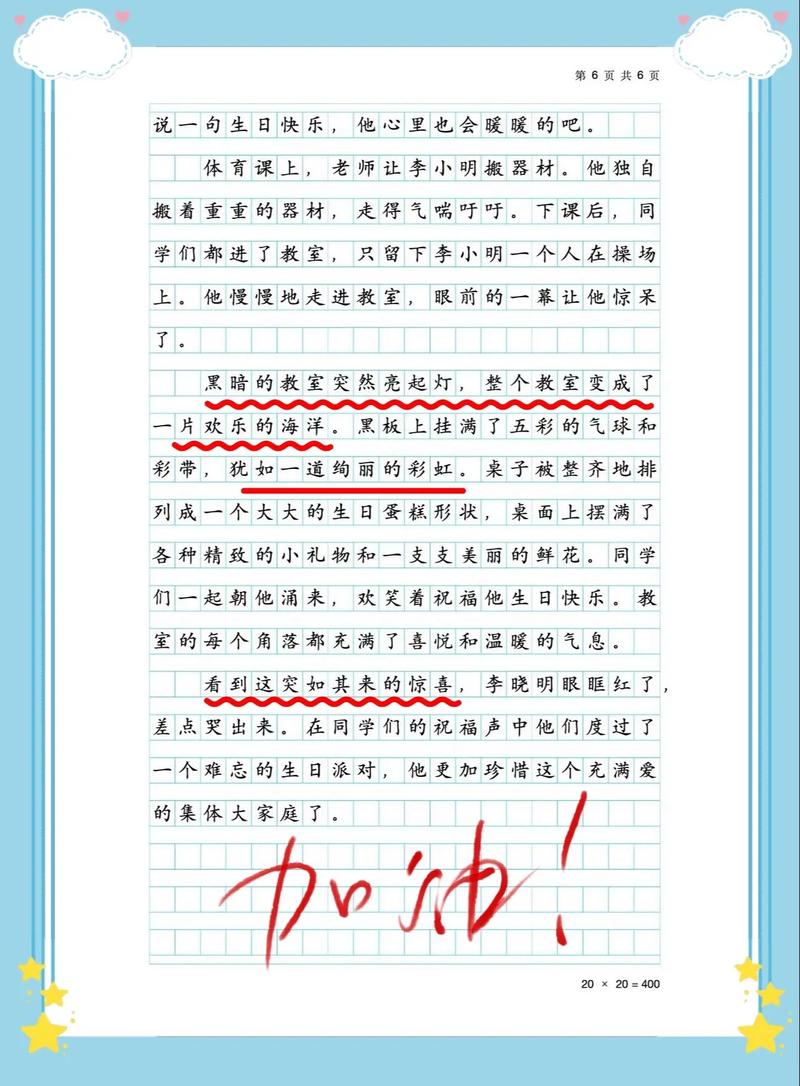 第 6 页 共 6 页
说一句生日快乐，他心里也会暖暖的吧。
体育课上，老师让李小明搬器材。他独自
搬着重重的器材，走得气喘吁吁。下课后，同
学们都进了教室，只留下李小明一个人在操场
上。他慢慢地走进教室，眼前的一幕让他惊呆
了。
黑暗的教室突然亮起灯，整个教室变成了
一片欢乐的海洋。黑板上挂满了五彩的气球和
彩带，犹如一道绚丽的彩虹。桌子被整齐地排
列成一个大大的生日蛋糕形状，桌面上摆满了
各种精致的小礼物和一支支美丽的鲜花。同学
们一起朝他涌来，欢笑着祝福他生日快乐。教
室的每个角落都充满了喜悦和温暖的气息。
看到这突如其来的惊喜，李晓明眼眶红了，
差点哭出来。在同学们的祝福声中他们度过了
一个难忘的生日派对，他更加珍惜这个充满爱
的集体大家庭了。
加油！
20 × 20 = 400